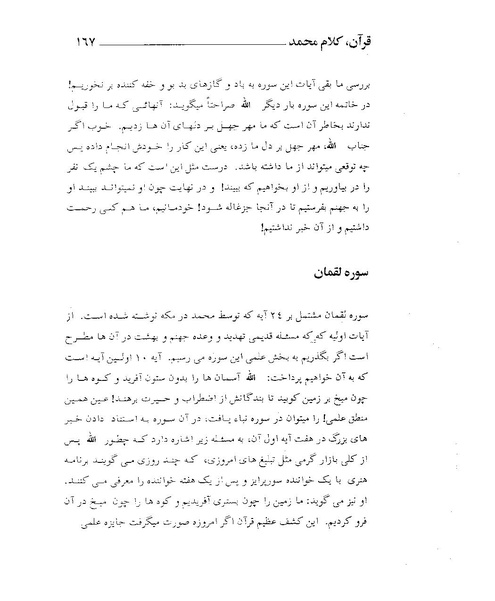 قرآن، کلام محمد ــــــــــــــــــــــــ ۱۶۷
بررسی ما بقی آیات این سوره به باد و گازهای بد بو و خفه کننده بر نخوریم!
در خاتمه این سوره بار دیگر الله صراحتاً میگوید: آنهائی که ما را قبول
ندارند بخاطر آن است که ما مهر جهل بر دلهای آن ها زدیم. خوب اگر
جناب الله، مهر جهل بر دل ما زده، یعنی این کار را خودش انجام داده پس
چه توقعی میتواند از ما داشته باشد. درست مثل این است که ما چشم یک نفر
را در بیاوریم و از او بخواهیم که ببیند! و در نهایت چون او نمیتواند ببیند او
را به جهنم بفرستیم تا در آنجا جزغاله شود! خودمانیم، ما هم کسی رحمت
داشتیم و از آن خبر نداشتیم!
سوره لقمان
سوره لقمان مشتمل بر ۲٤ آیه که توسط محمد در مکه نوشته شده است. از
آیات اولیه که که مسئله قدیمی تهدید و وعده جهنم و بهشت در آن ها مطرح
است اگر بگذریم به بخش علمی این سوره می رسیم. آیه ۱۰ اولین آیه است
که به آن خواهیم پرداخت: الله آسمان ها را بدون ستون آفرید و کوه ها را
چون میخ بر زمین کوبید تا بندگانش از اضطراب و حیرت برهند! عین همین
منطق علمی! را میتوان در سوره نباء یافت، در آن سوره به استناد دادن خبر
های بزرگ در هفت آیه اول آن، به مسئله زیر اشاره دارد که چطور الله پس
از کلی بازار گرمی مثل تبلیغ های امروزی، که چند روزی می گویند برنامه
هنری با یک خواننده سورپرایز و پس از یک هفته خواننده را معرفی می کنند.
او نیز می گوید: ما زمین را چون بستری آفریدیم و کوه ها را چون میخ در آن
فرو کردیم. این کشف عظیم قرآن اگر امروزه صورت میگرفت جایزه علمی